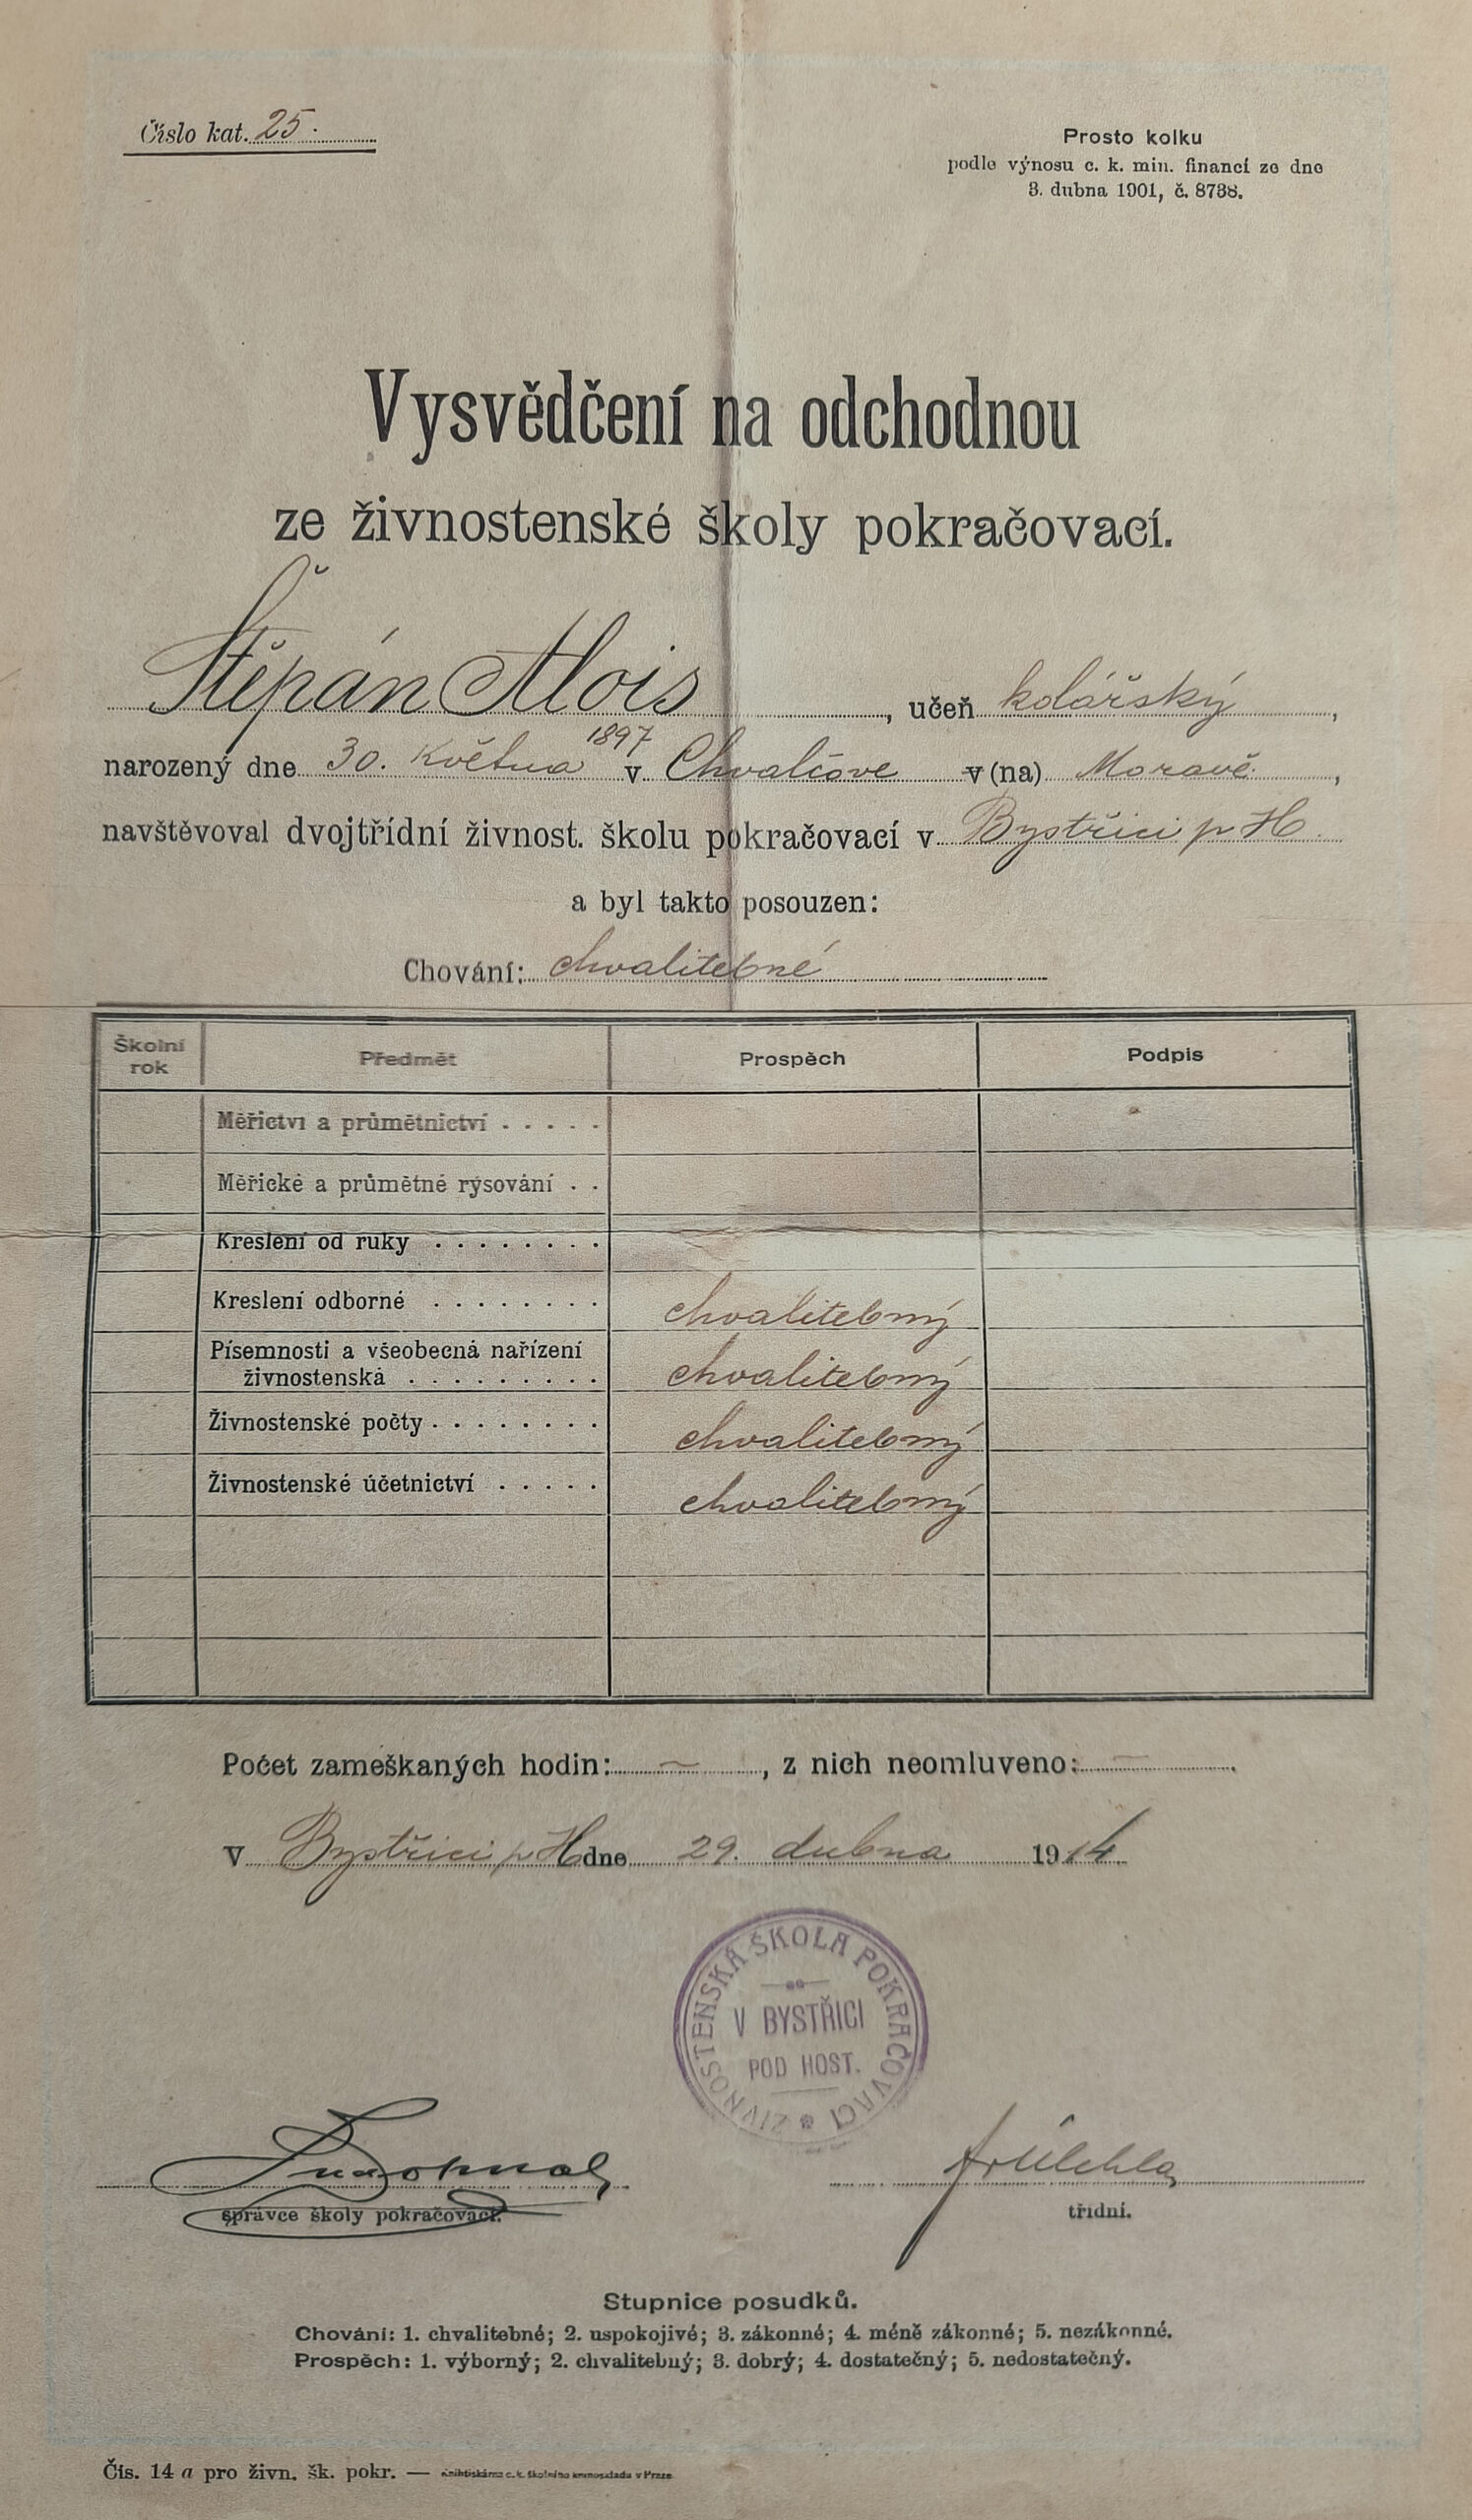 Číslo kat. 25.
Prosto kolku
podle výnosu c. k. min. financí ze dne
3. dubna 1901, č. 8738.
Vysvědčení na odchodnou
ze živnostenské školy pokračovací.
Štěpán Alois, učeň kolářský,
1897
narozený dne 30. května v Chvalčově v (na) Moravě,
navštěvoval dvojtřídní živnost. školu pokračovací v Bystřici p H.
a byl takto posouzen:
Chování: chvalitebné
Školní rok Předmět Prospěch Podpis
Měřictví a průmětnictví . . . . .
Měřické a průmětné rýsování . .
Kreslení od ruky . . . . . . . .
Kreslení odborné . . . . . . . . chvalitebný
Písemnosti a všeobecná nařízení
živnostenská . . . . . . . . . chvalitebný
Živnostenské počty . . . . . . . . chvalitebný
Živnostenské účetnictví . . . . . chvalitebný
Počet zameškaných hodin: — , z nich neomluveno: — .
V Bystřici p H dne 29. dubna 1914.
ŽIVNOSTENSKÁ ŠKOLA POKRAČOVACÍ
V BYSTŘICI
POD HOST.
správce školy pokračovací.
třídní.
Stupnice posudků.
Chování: 1. chvalitebné; 2. uspokojivé; 3. zákonné; 4. méně zákonné; 5. nezákonné.
Prospěch: 1. výborný; 2. chvalitebný; 3. dobrý; 4. dostatečný; 5. nedostatečný.
Čís. 14 a pro živn. šk. pokr. — Knihtiskárna c. k. školního knihoskladu v Praze